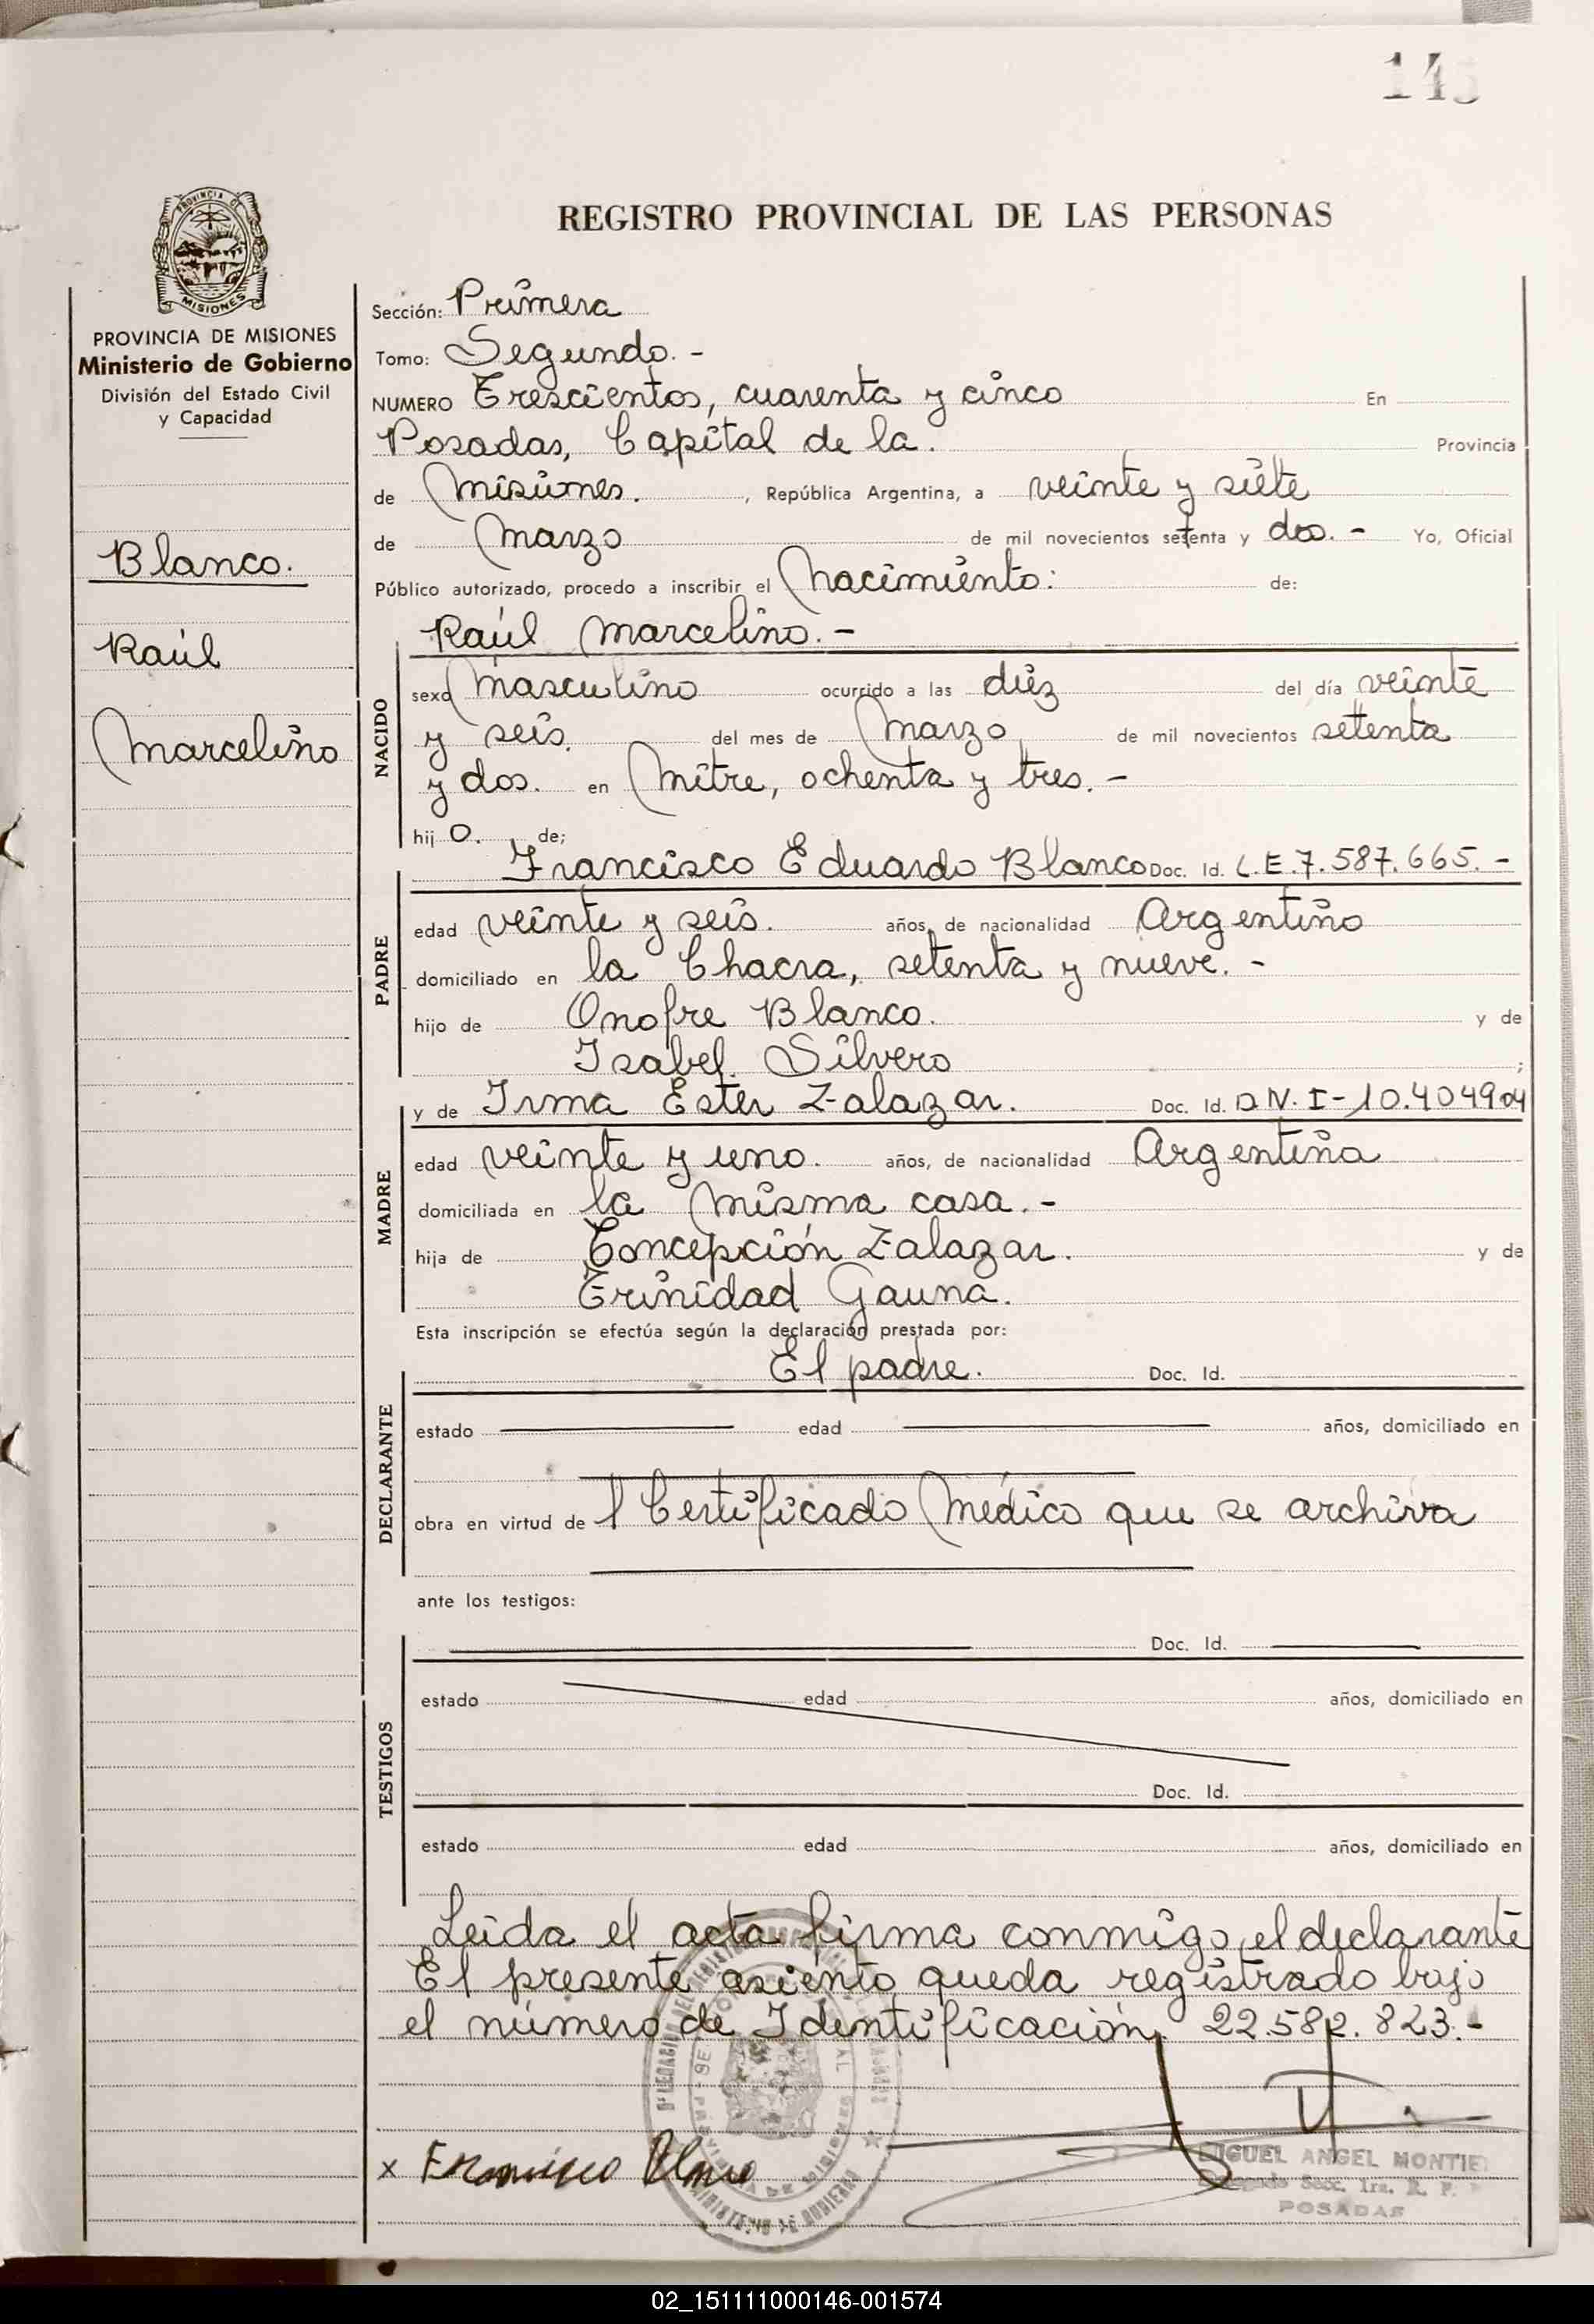 145
REGISTRO PROVINCIAL DE LAS PERSONAS
PROVINCIA DE MISIONES
Ministerio de Gobierno
División del Estado Civil
y Capacidad
Blanco.
Raúl
Marcelino
Sección: Primera
Tomo: Segundo. -
NUMERO Trescientos, cuarenta y cinco En
Posadas, Capital de la. Provincia
de Misiones. , República Argentina, a veinte y siete
de Marzo de mil novecientos setenta y dos. - Yo, Oficial
Público autorizado, procedo a inscribir el Nacimiento: de:
Raúl Marcelino. -
NACIDO
sexo Masculino ocurrido a las diez del día veinte
y seis. del mes de Marzo de mil novecientos setenta
y dos. en Mitre, ochenta y tres. -
hij o. de;
Francisco Eduardo Blanco Doc. Id. L.E.7.587.665. -
PADRE
edad veinte y seis. años, de nacionalidad Argentino
domiciliado en la Chacra, setenta y nueve. -
hijo de Onofre Blanco. y de
Isabel Silvero ;
y de Irma Ester Zalazar. Doc. Id. D.N.I-10.404904
MADRE
edad veinte y uno. años, de nacionalidad Argentina
domiciliada en la misma casa. -
hija de Concepción Zalazar. y de
Trinidad Gauna.
Esta inscripción se efectúa según la declaración prestada por:
El padre. Doc. Id.
DECLARANTE
estado edad años, domiciliado en
obra en virtud de l Certificado Médico que se archiva
ante los testigos:
Doc. Id.
TESTIGOS
estado edad años, domiciliado en
Doc. Id.
estado edad años, domiciliado en
Leída el acta firma conmigo, el declarante
El presente asiento queda registrado bajo
el número de Identificación 22.582.823.-
x Francisco Blanco
MIGUEL ANGEL MONTIEL
Secc. 1ra. R. P.
POSADAS
02_151111000146-001574